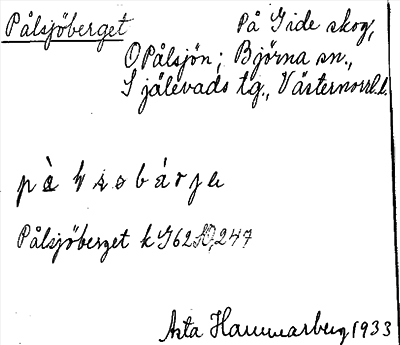 Pålsjöberget På Gide skog,
O Pålsjön; Björna sn.,
Själevads tg., Västernorrl. l.
Pålsjöberget k G62 247
Asta Hammarberg 1933